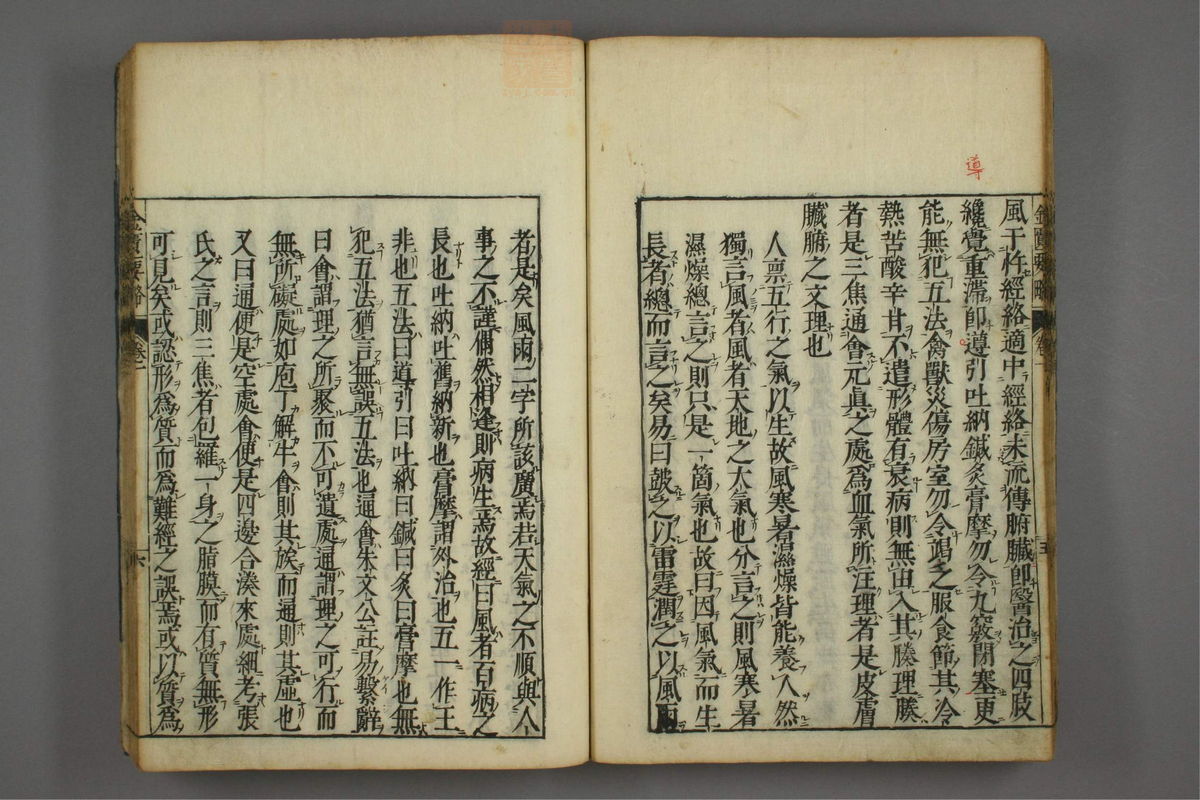 導
風干忤經絡適中經絡未流傳腑臟卽醫治之四肢
纔覺重滯卽遵引吐納鍼灸膏摩勿令九竅閉塞更
能無犯五法禽獸災傷房室勿令竭乏服食節其冷
熱苦酸辛甘不遺形體有衰病則無由入其腠理腠
者是三焦通會元眞之處爲血氣所注理者是皮膚
臟腑之文理也
人禀五行之氣以生故風寒暑濕燥皆能養人然
獨言風者風者天地之大氣也分言之則風寒暑
濕燥總言之則只是一箇氣也故曰因風氣而生
長者總而言之矣易曰皷之以雷霆潤之以風雨
者是矣風雨二字所該廣焉若天氣之不順與人
事之不謹偶然相逢則病生焉故經曰風者百病之
長也吐納吐舊納新也膏摩謂外治也五一作王
非也五法曰道引曰吐納曰鍼曰灸曰膏摩也無
犯五法猶言無誤五法也通會朱文公註易繫辭
曰會謂理之所聚而不可遺處通謂理之可行而
無所礙處如庖丁解牛會則其族而通則其虛也
又曰通便是空處會便是四邊合湊來處細考張
氏之言則三焦者包羅一身之脂膜而有質無形
可見矣或認形爲質而爲難經之誤焉或以質爲